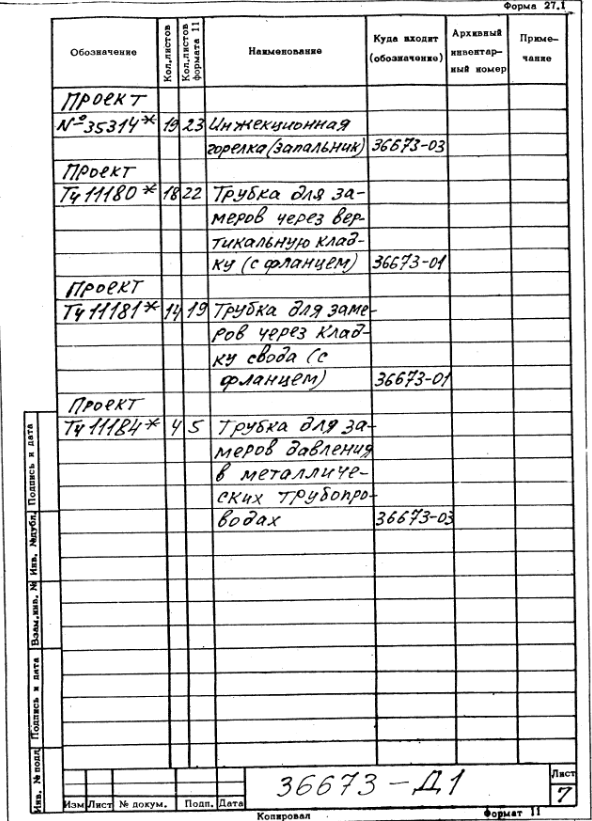 Форма 27.1
Обозначение Кол.листов Кол.листов формата 11 Наименование Куда входит (обозначение) Архивный инвентар-ный номер Приме-чание
Проект
№35314* 19 23 Инжекционная
горелка (запальник) 36673-03
Проект
Тч 11180* 18 22 Трубка для за-
меров через вер-
тикальную клад-
ку (с фланцем) 36673-01
Проект
Тч 11181* 14 19 Трубка для заме-
ров через клад-
ку свода (с
фланцем) 36673-01
Проект
Тч 11184* 4 5 Трубка для за-
меров давления
в металличе-
ских трубопро-
водах 36673-03
Инв. № подл. Подпись и дата Взам.инв. № Инв. №дубл. Подпись и дата
36673-Д1 Лист
7
Изм Лист № докум. Подп. Дата
Копировал Формат 11